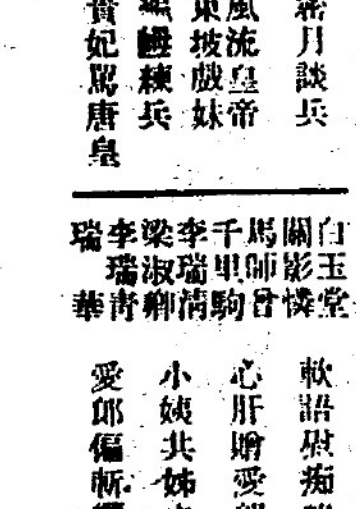 月談兵
風流皇帝
東坡戲妹
練兵
貴妃罵唐皇
白玉堂
關影憐
馬師曾
千里駒
李瑞清
梁淑卿
李瑞青
瑞華
軟語慰痴
心肝贈愛
小姨共姊
愛郎偏斬